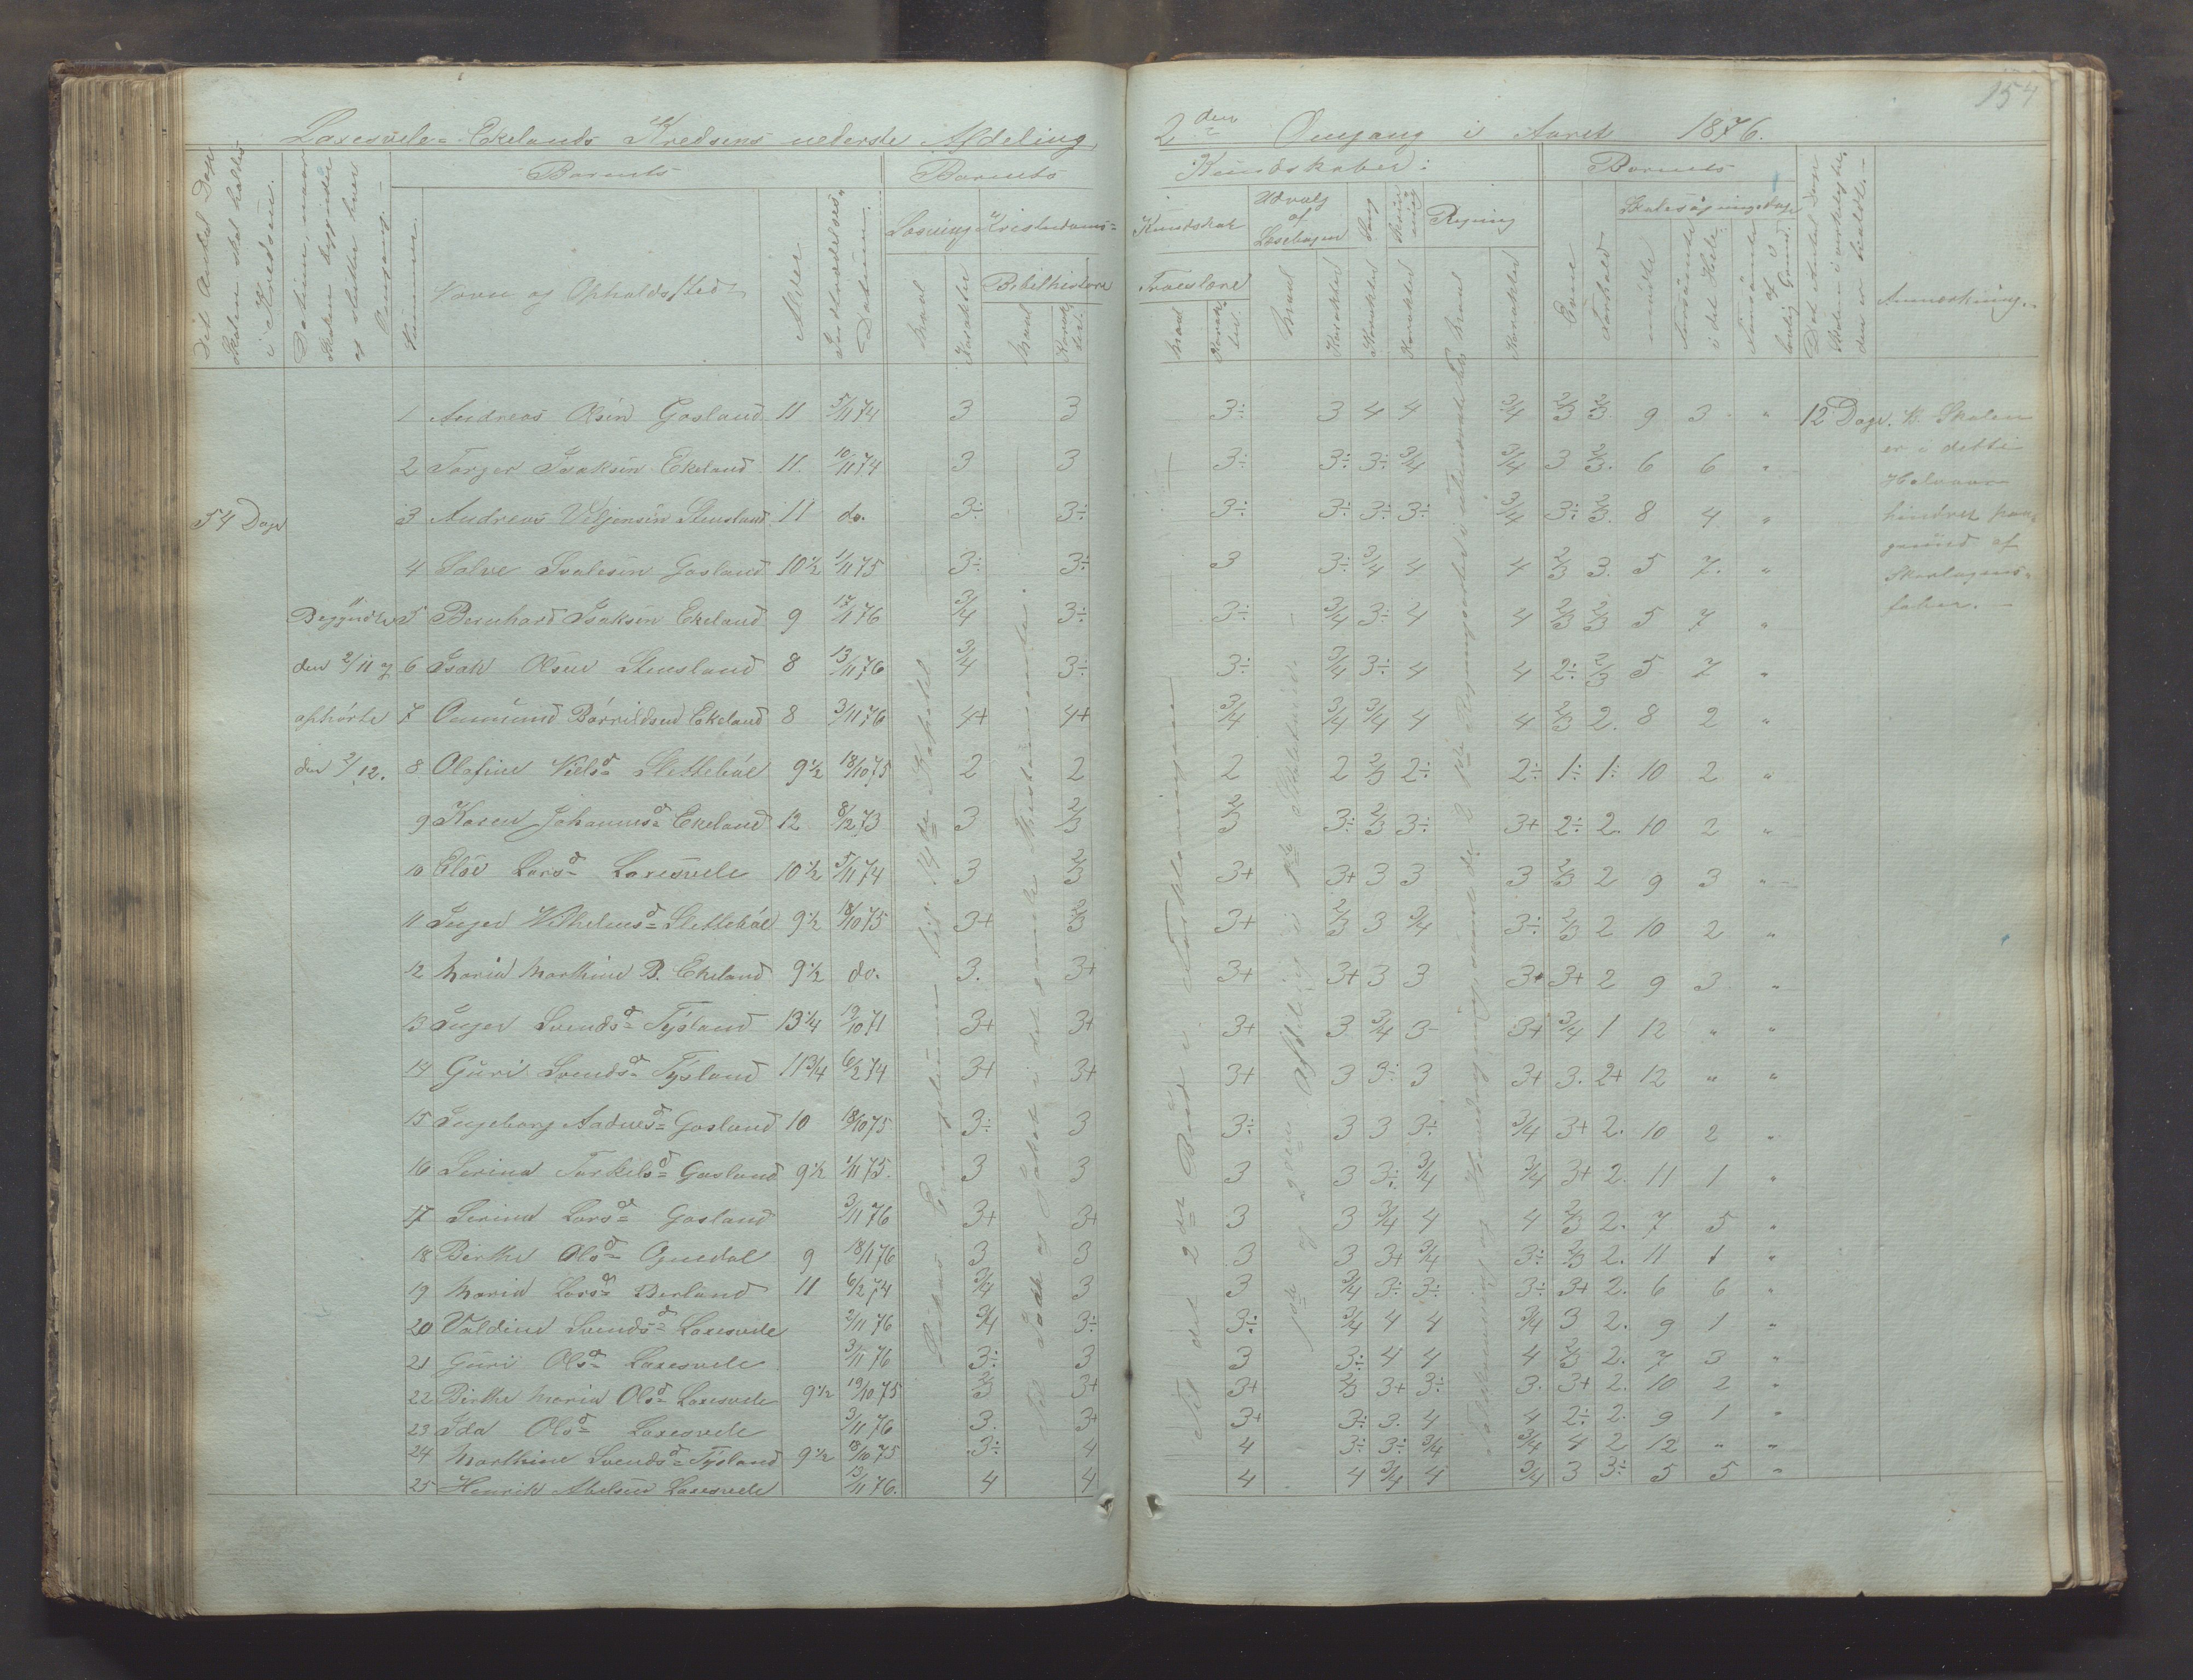 154
Laxesvele-Ekelands Kredsens nederste Afdeling, 2den Omgang i Aaret 1876.
Barnets Barnets Kundskaber: Barnets
Det Antal Dage Skolen skal holdes i Kredsen.
Datum, naar Skolen begynder og slutter hver Omgang.
Nummer.
Navn og Opholdssted
Alder
Indtrædelses-Datum.
Læsning Kristendoms- Kundskab Udvalg af Læsebogen Sang Skrivning Regning
Maal Karakter Bibelhistorie Maal Karakter Troeslære Maal Karakter Maal Karakter Karakter Karakter Maal Karakter
Evne Forhold Skolesøgningsdage mødte Forsømte i det Hele Forsømte af lovlig Grund.
Det Antal Dage Skolen i virkeligheden er holdt.
Anmærkning.
1 Andreas Olsen Gosland 11 5/11 74 3 3 3÷ 3 4 4 3/4 2/3 2/3 9 3 " 12 Dage.
2 Torger Isaksen Ekeland 11. 10/11 74 3 3 3÷ 3÷ 3÷ 3/4 3/4 3 2/3 6 6 "
54 Dage
3 Andreas Veljensen Stensland 11 do. 3÷ 3÷ 3÷ 3÷ 3÷ 3÷ 3/4 3÷ 2/3 8 4 "
4 Salve Svalesen Gosland 10 1/2 1/11 75 3÷ 3÷ 3 3÷ 3/4 4 4 2/3 3. 5 7. "
5 Bernhard Isaksen Ekeland 9 17/1 76 3/4 3÷ 3÷ 3/4 3÷ 4 4 2/3 2/3 5 7 "
6 Isak Olsen Stensland 8 13/11 76 3/4 3÷ 3÷ 3/4 3÷ 4 4 2÷ 2/3 5 7 "
7 Ommund Børrildsen Ekeland 8 3/11 76 4+ 4+ 3/4 3/4 3/4 4 4 2/3 2. 8 2 "
8 Olafine Nielsd. Slettebøe 9 1/2 18/10 75 2 2 2 2 2/3 2÷ 2÷ 1÷ 1÷ 10 2 "
9 Karen Johannesd. Ekeland 12 8/12 73 3 2/3 2/3 3÷ 2/3 3÷ 3+ 2÷ 2. 10 2 "
10 Elise Larsd. Laxesvele 10 1/2 5/11 74 3 2/3 3+ 3+ 3 3 3 2/3 2 9 3 "
11 Inger Wilhelmsd. Slettebøe 9 1/2 18/10 75 3+ 2/3 3+ 2/3 3 3/4 3÷ 2/3 2 10 2 "
12 Maria Marthine B. Ekeland 9 1/2 do. 3. 3+ 3+ 3+ 3 3 3+ 3+ 2 9 3 "
13 Inger Svendsd. Tysland 13 1/4 19/10 71 3+ 3+ 3+ 3 3/4 3- 3+ 3/4 1 12 " "
14 Guri Svendsd. Tysland 11 3/4 6/2 74 3+ 3+ 3+ 3 3÷ 3 3+ 3. 2+ 12 " "
15 Ingeborg Aadnesd. Gosland 10 18/10 75 3÷ 3 3÷ 3 3 3÷ 3/4 3+ 2. 10 2 "
16 Serina Torkilsd. Gosland 9 1/2 1/11 75. 3 3 3 3 3÷ 3/4 3/4 3+ 2. 11 1 "
17 Serina Larsd. Gosland 3/11 76 3+ 3+ 3 3 3/4 4 4 2/3 2. 7 5 "
18 Birthe Olsd. Ognedal 9 18/1 76 3 3 3 3 3+ 3/4 3÷ 2/3 2. 11 1 "
19 Maria Larsd. Berland 11 6/2 74 3/4 3 3 3/4 3÷ 3÷ 3÷ 3+ 2. 6 6 "
20 Valdine Svendsd. Laxesvele 2/11 76 3/4 3÷ 3÷ 3/4 4 4 3/4 3 2. 9 1 "
21 Guri Olsd. Laxesvele 3/11 76 3÷ 3 3 3÷ 4 4 4 2/3 2. 7 3 "
22 Birthe Maria Olsd. Laxesvele 9 1/2 19/10 75 2/3 3+ 3+ 2/3 3+ 3÷ 3. 3+ 2. 10 2 "
23 Ida Olsd. Laxesvele 3/11 76 3. 3+ 3+ 3÷ 3. 4 4 2÷ 2. 9 1 "
24 Marthine Svendsd. Tysland 9 1/2 18/10 75 3÷ 4 4 3÷ 3÷ 3/4 3/4 4 2 12 " "
25 Henrik Abelsen Laxesvele 13/11 76. 4 4 4 4 3/4 4 3/4 3 3÷ 5 5 "
Begyndte
den 2/11 og
ophørte
den 2/12.
Skolen
er i dette
Halvaar
hindret paa
grund af
Skarlagens-
feber.
Lukas Evangelium til 14de Kapitel
Til det 2det Bud i Forklaringen